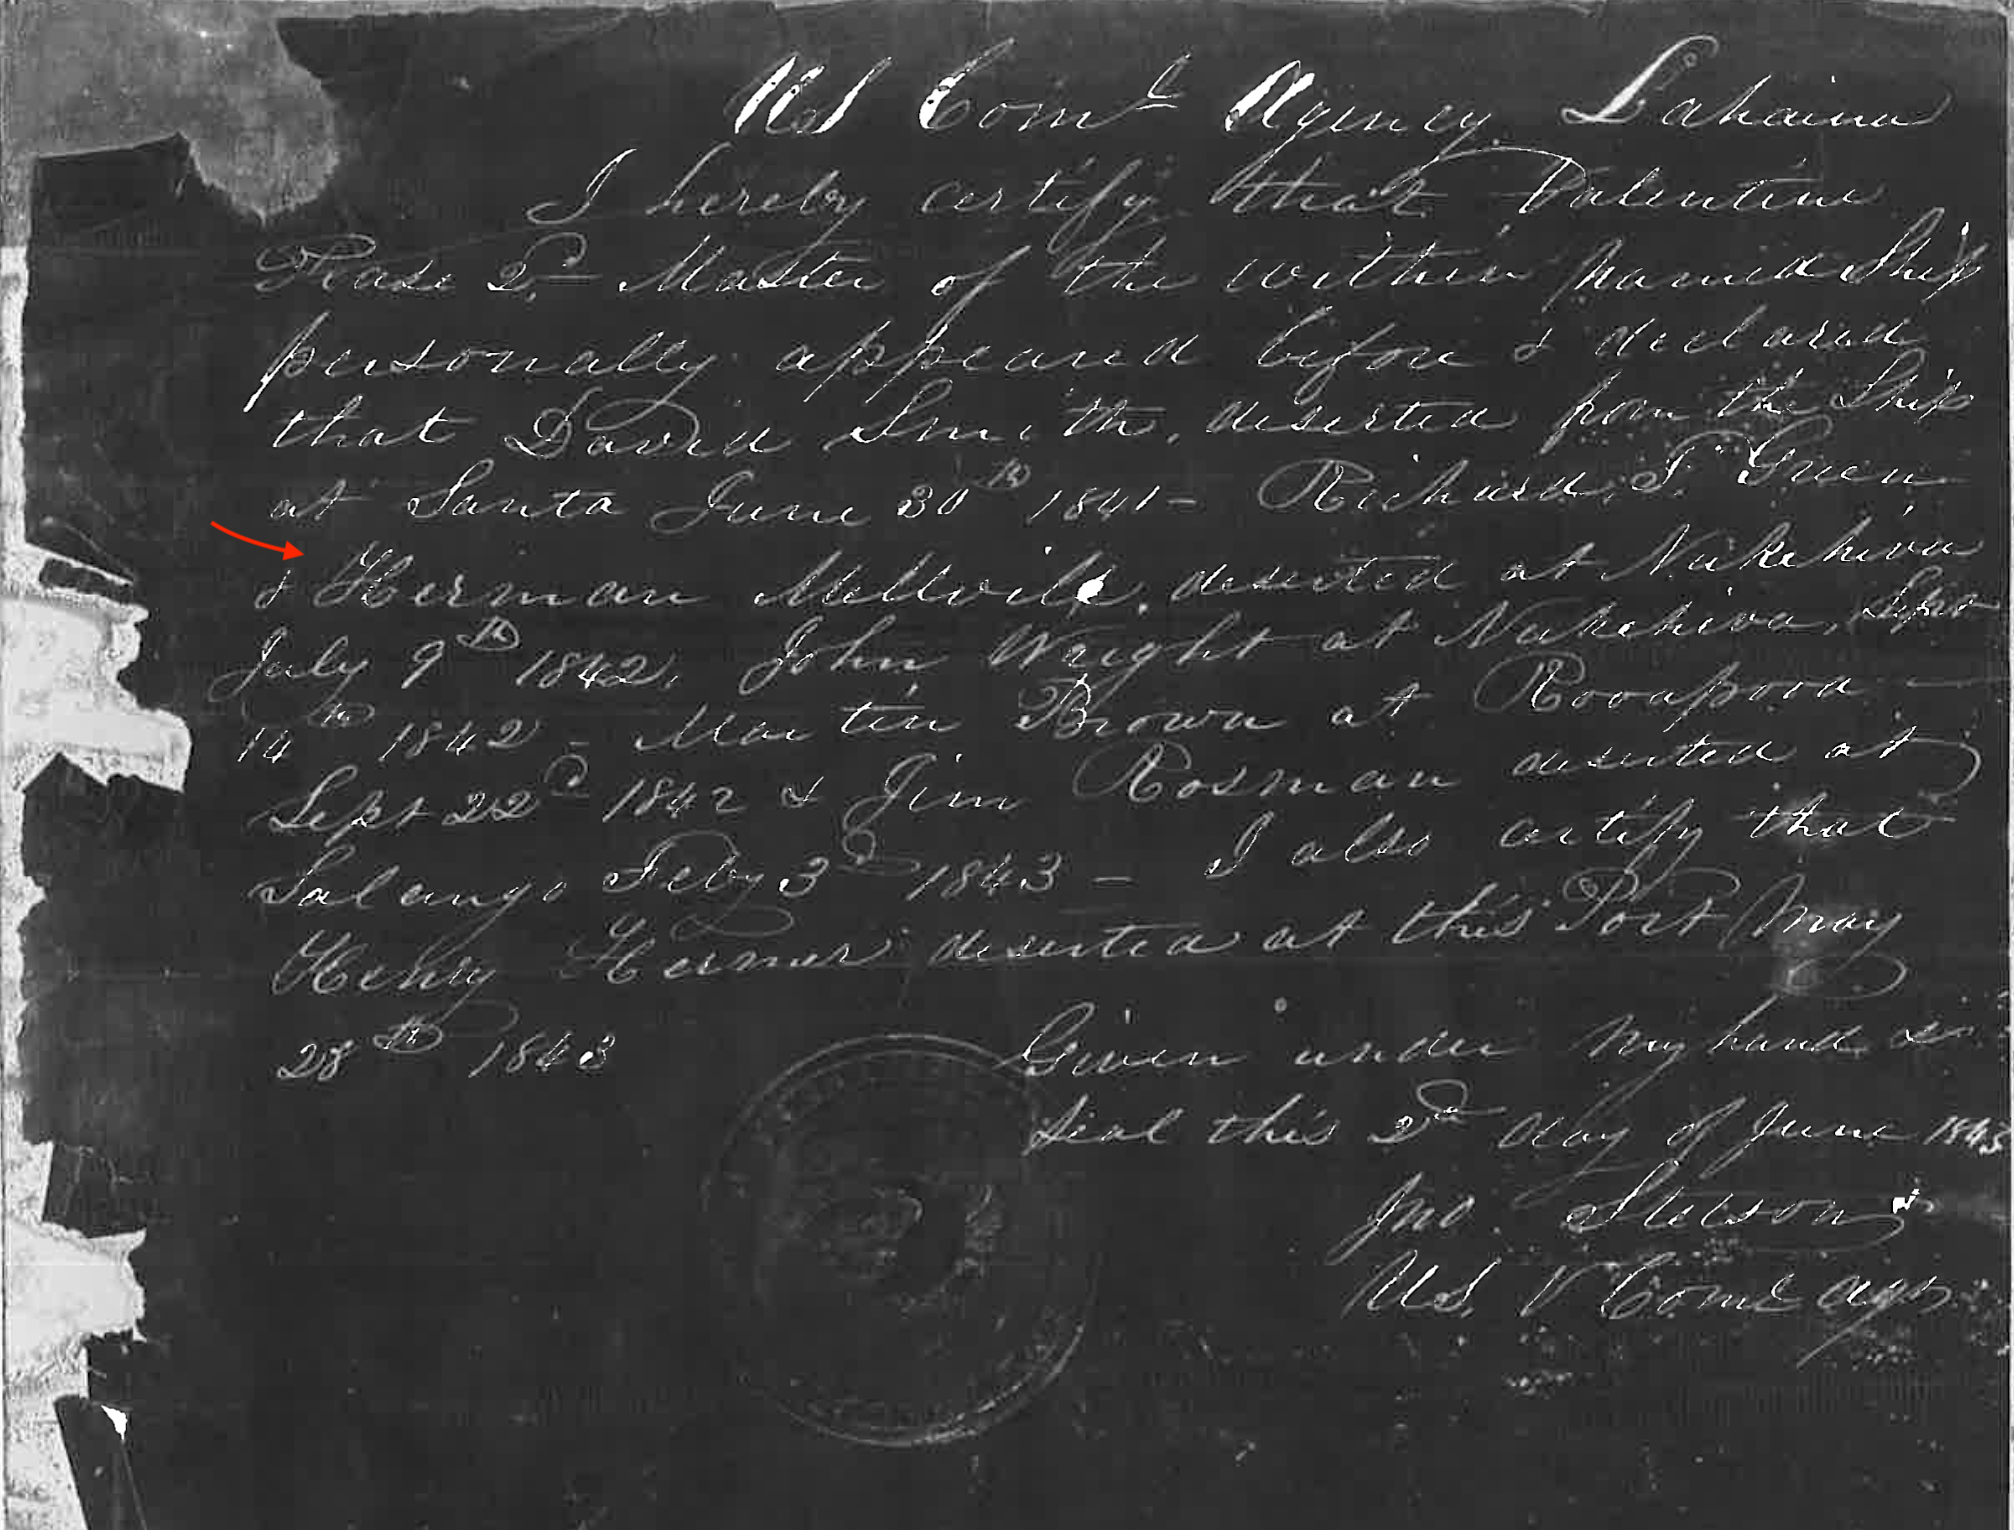 US Coml Agency Lahaina
I hereby certify that Valentine
Pease 2d Master of the within named Ship
personally appeared before & declared
that David Smith, deserted from the Ship
at Santa June 30th 1841 – Richard T. Green
& Herman Mellville, deserted at Nukehiva
July 9th 1842, John Wright at Nukehiva, Sept
14th 1842 – Martin Brown at Rooapooa –
Sept 22d 1842 & Jim Rosman deserted at
Salango Feby 3d 1843 – I also certify that
Henry Hermer deserted at this Port May
28th 1843
Given under my hand &
seal this 2nd day of June 1843
Jno. Stetson
US. V Coml Agt